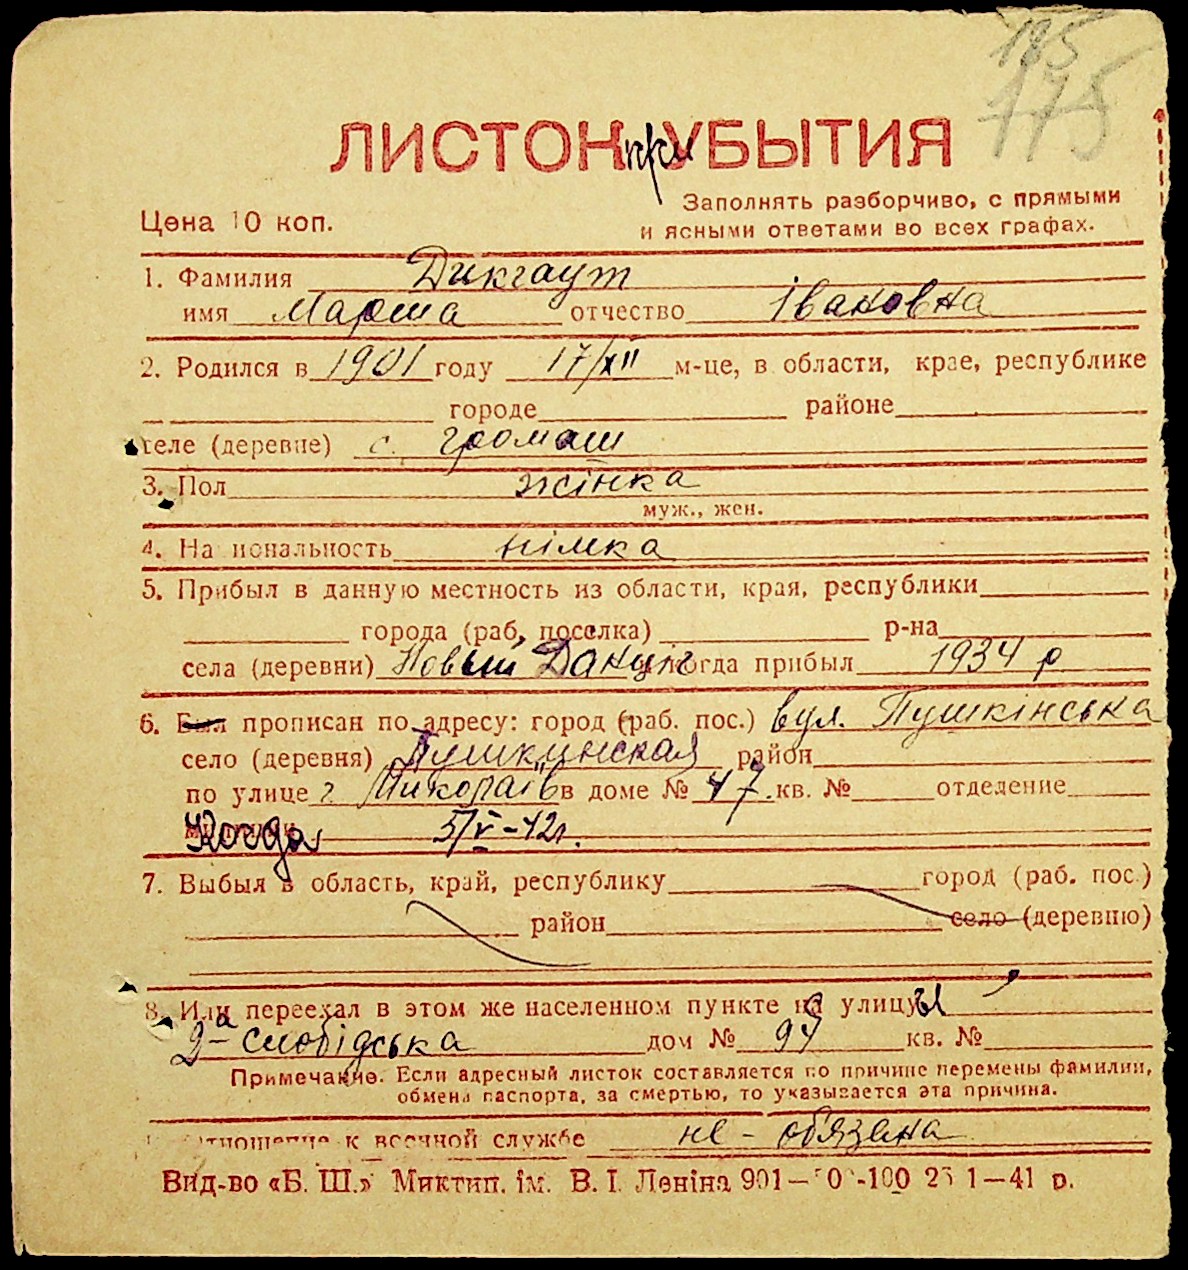 185
175
ЛИСТОК при УБЫТИЯ
Заполнять разборчиво, с прямыми
Цена 10 коп.
и ясными ответами во всех графах.
1. Фамилия Дикгаут
имя Марта отчество Івановна
2. Родился в 1901 году 17/XII м-це, в области, крае, республике
городе районе
селе (деревне) с. Громаш
3. Пол жінка
муж., жен.
4. На иональность німка
5. Прибыл в данную местность из области, края, республики
города (раб. поселка) р-на
села (деревни) Новый Данциг когда прибыл 1934 р
6. Был прописан по адресу: город (раб. пос.) вул. Пушкінська
село (деревня) Пушкинская район
по улице г. Миколаїв в доме № 47. кв. № отделение
Когда 5/V-42г.
7. Выбыл в область, край, республику город (раб. пос.)
район село (деревню)
8. Или переехал в этом же населенном пункте на улицу
2-а Слобідська дом № 94 кв. №
Примечание. Если адресный листок составляется по причине перемены фамилии,
обмена паспорта, за смертью, то указывается эта причина.
тношение к военной службе не - обязана
Вид-во «Б. Ш.» Миктип. ім. В. І. Леніна 901— 0 -100 25 1—41 р.